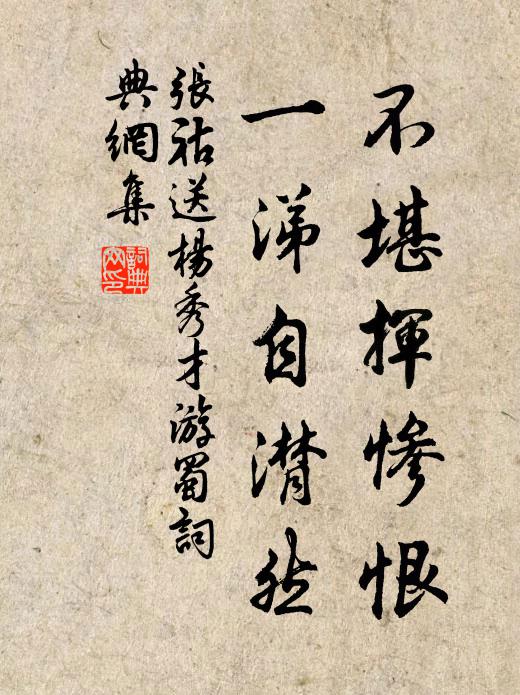 不堪揮慘恨
一涕自潸然
張祜送楊秀才游蜀詞
典網集
詞典網印